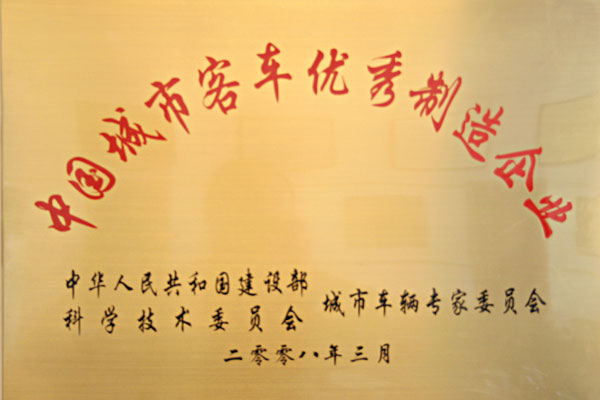 中国城市客车优秀制造企业
中华人民共和国建设部
科学技术委员会 城市车辆专家委员会
二零零八年三月